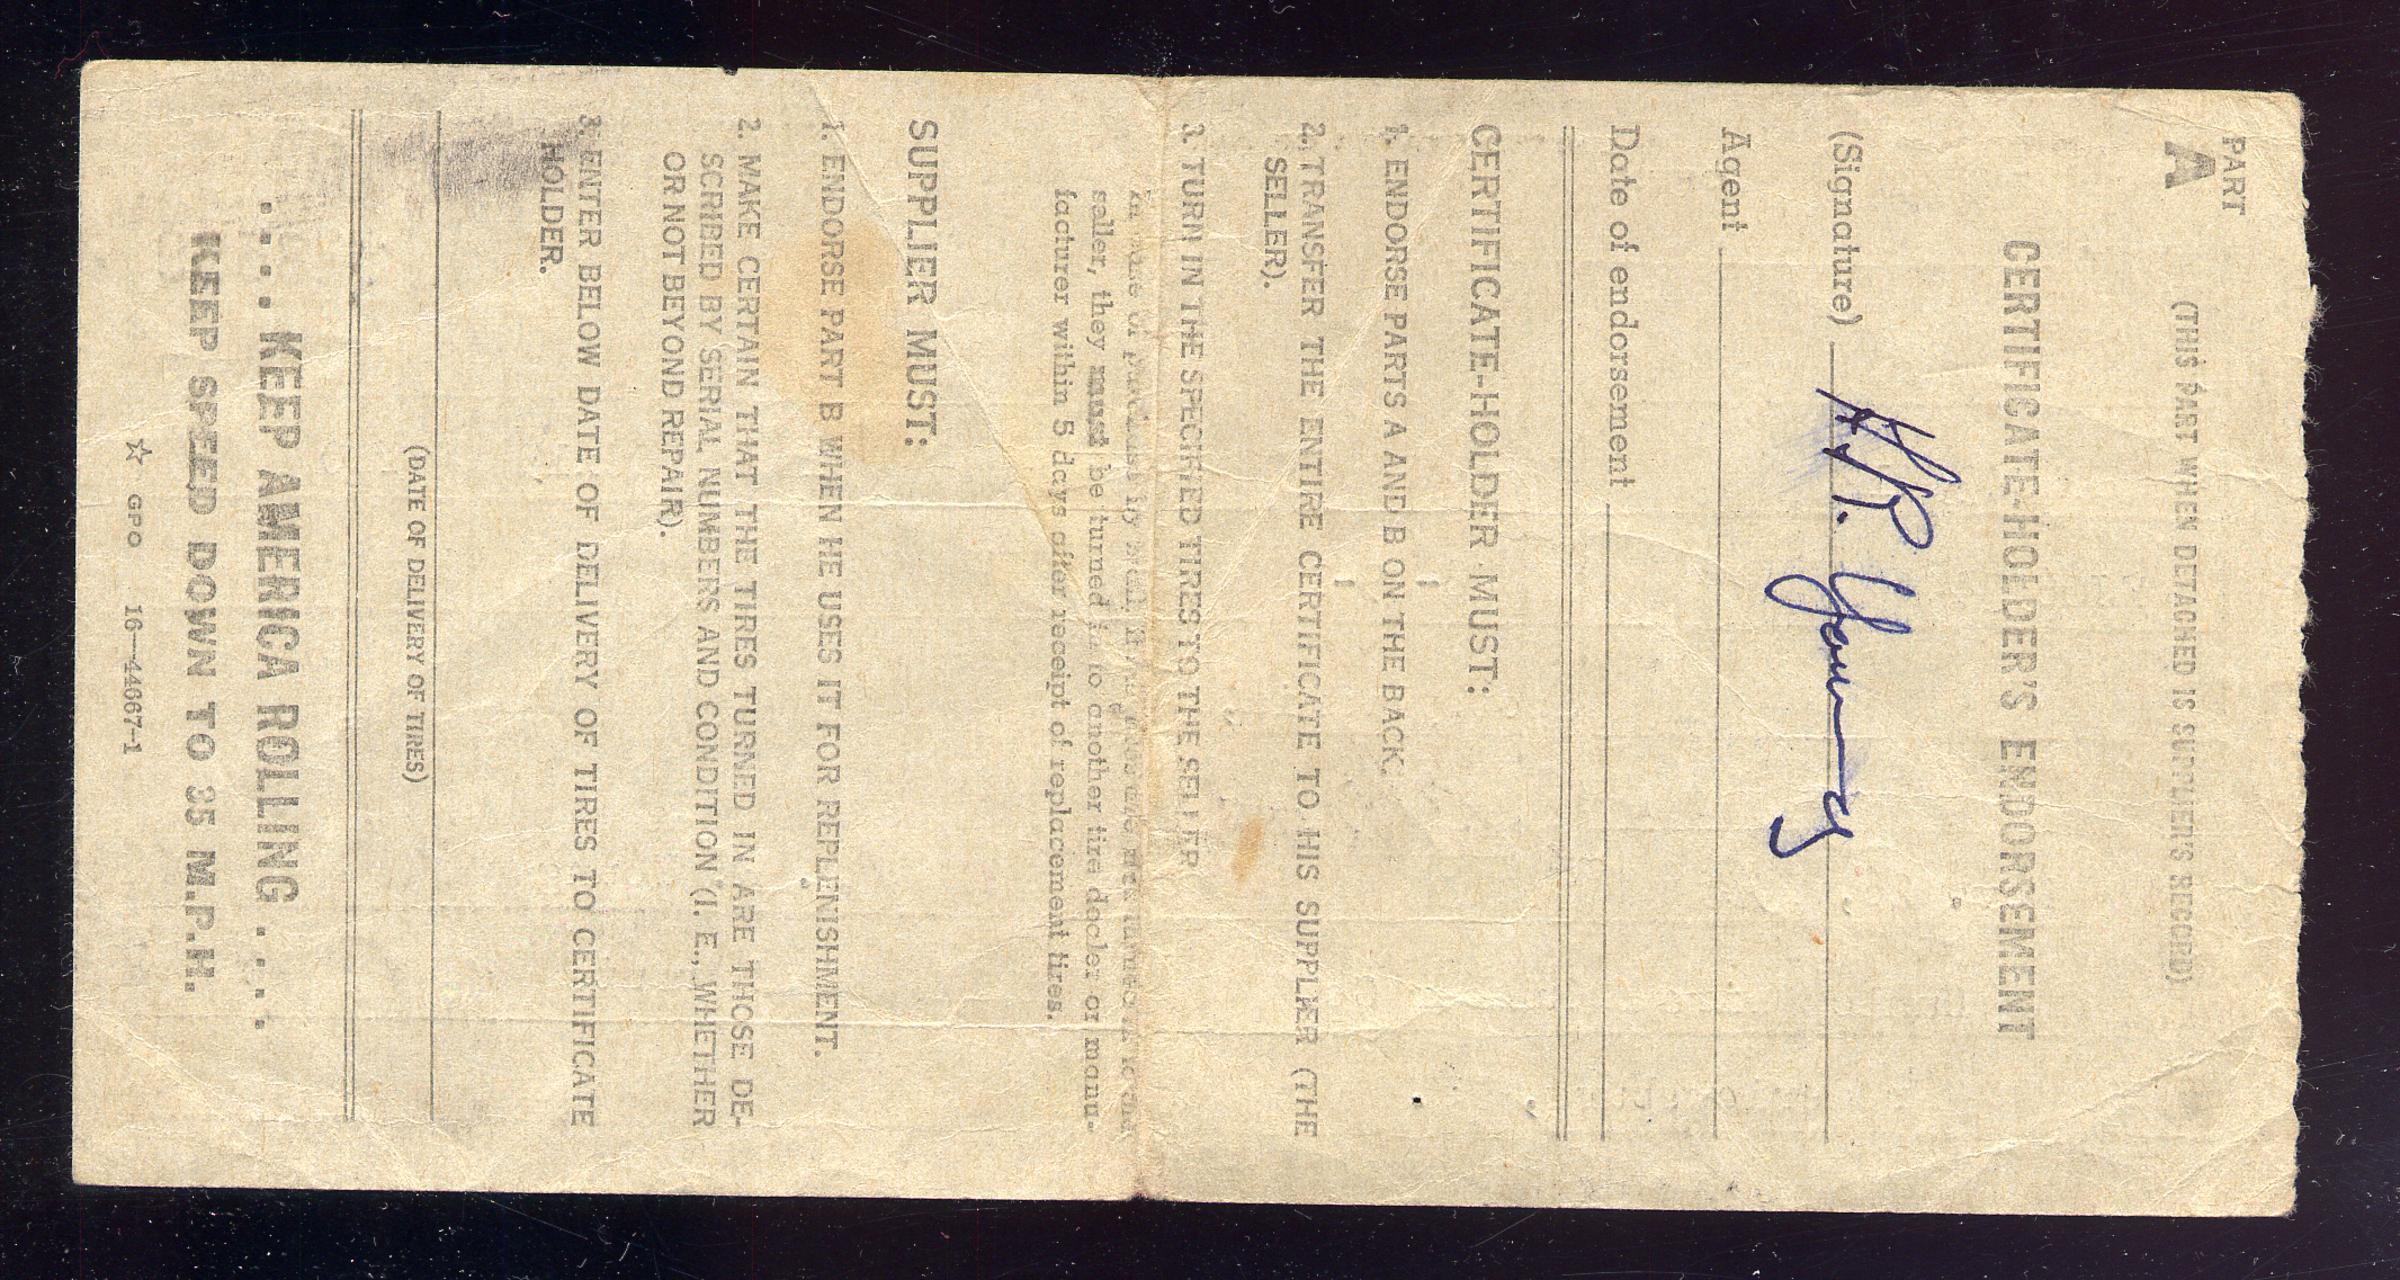 PART
A
(THIS PART WHEN DETACHED IS SUPPLIER'S RECORD)
CERTIFICATE-HOLDER'S ENDORSEMENT
(Signature) H.R. Young
Agent
Date of endorsement
CERTIFICATE-HOLDER MUST:
1. ENDORSE PARTS A AND B ON THE BACK.
2. TRANSFER THE ENTIRE CERTIFICATE TO HIS SUPPLIER (THE
SELLER).
3. TURN IN THE SPECIFIED TIRES TO THE SELLER
In case of purchase by mail, if the tires are not turned in to the
seller, they must be turned in to another tire dealer or manu-
facturer within 5 days after receipt of replacement tires.
SUPPLIER MUST:
1. ENDORSE PART B WHEN HE USES IT FOR REPLENISHMENT.
2. MAKE CERTAIN THAT THE TIRES TURNED IN ARE THOSE DE-
SCRIBED BY SERIAL NUMBERS AND CONDITION (I. E., WHETHER
OR NOT BEYOND REPAIR).
3. ENTER BELOW DATE OF DELIVERY OF TIRES TO CERTIFICATE
HOLDER.
(DATE OF DELIVERY OF TIRES)
. . . KEEP AMERICA ROLLING . . .
KEEP SPEED DOWN TO 35 M.P.H.
☆ GPO 16—44667-1